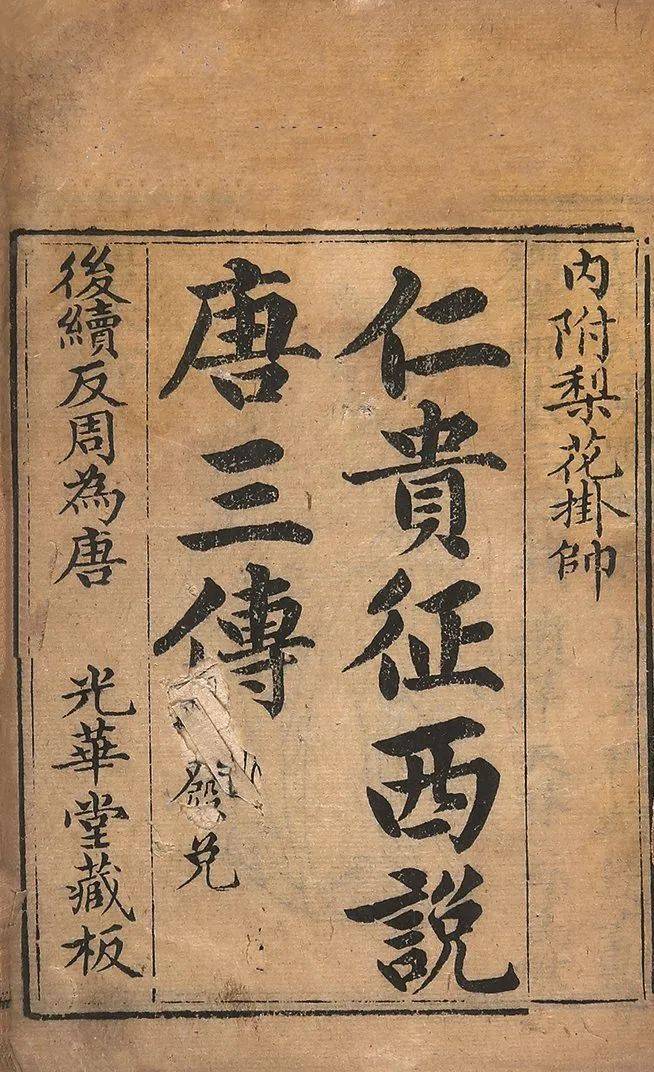 内附梨花掛帥
仁貴征西說
唐三傳
發兌
後續反周為唐
光華堂藏板